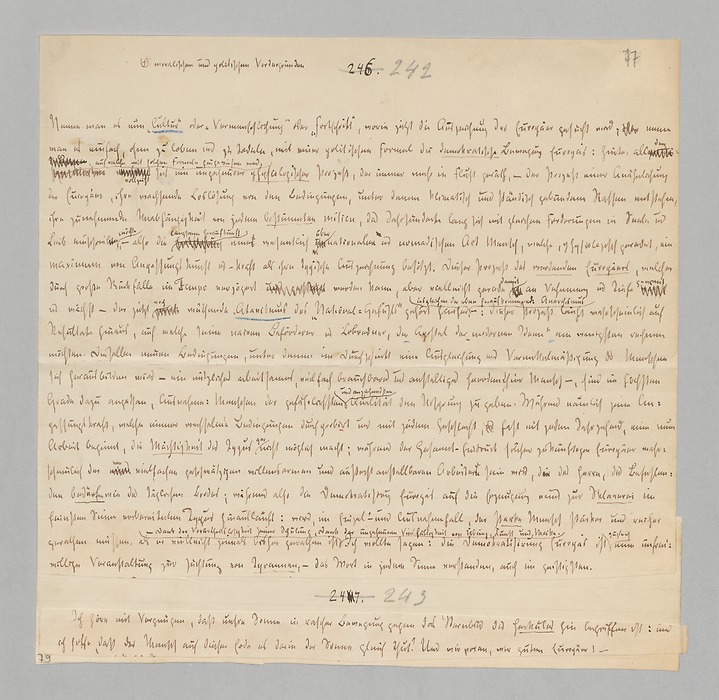 ⊕ moralischen und politischen Vordergründen
246. 242
77
Nenne man es nun „Cultur“ oder „Vermenschlichung“ oder „Fortschritt“, worin jetzt die Auszeichnung der Europäer gesucht wird; nenne
man es einfach, ohne zu loben und zu tadeln, mit einer politischen Formel die demokratische Bewegung Europas: hinter all den
, auf welche mit solchen Formeln hingewiesen wird,
vollzieht sich ein ungeheurer physiologischer Prozeß, der immer mehr in Fluß geräth, — der Prozeß einer Anähnlichung
der Europäer, ihre wachsende Loslösung von den Bedingungen, unter denen klimatisch und ständisch gebundene Rassen entstehen,
ihre zunehmende Unabhängigkeit von jedem bestimmten milieu, das Jahrhunderte lang sich mit gleichen Forderungen in Seele und
Leib einschreiben möchte — also die langsame Heraufkunft einer wesentlich übernationalen und nomadischen Art Mensch, welche, physiologisch geredet, ein
maximum von Anpassungskunst und -kraft als ihre typische Auszeichnung besitzt. Dieser Prozeß des werdenden Europäers, welcher
durch große Rückfälle im Tempo verzögert werden kann, aber vielleicht gerade damit an Vehemenz und Tiefe gewinnt
und wächst — der jetzt noch wüthende Atavismus des „National-Gefühls“ gehört hierher, insgleichen der eben heraufkommende Anarchismus —: dieser Prozeß läuft wahrscheinlich auf
Resultate hinaus, auf welche seine naiven Beförderer und Lobredner, die Apostel der „modernen Ideen“ am wenigsten rechnen
möchten. Dieselben neuen Bedingungen, unter denen im Durchschnitt eine Ausgleichung und Vermittelmäßigung des Menschen
sich herausbilden wird — ein nützliches arbeitsames vielfach brauchbares und anstelliges Heerdenthier Mensch —, sind im höchsten
Grade dazu angethan, Ausnahme-Menschen der gefährlichsten und anziehendsten Qualität den Ursprung zu geben. Während nämlich jene An-
passungskraft, welche immer wechselnde Bedingungen durchprobirt und mit jedem Geschlecht, fast mit jedem Jahrzehend, eine neue
Arbeit beginnt, die Mächtigkeit des Typus gar nicht möglich macht; während der Gesammt-Eindruck solcher zukünftiger Europäer wahr-
scheinlich der von vielfachen geschwätzigen willensarmen und äußerst anstellbaren Arbeitern sein wird, die des Herrn, des Befehlen-
den bedürfen wie des täglichen Brodes; während also die Demokratisirung Europas auf die Erzeugung eines zur Sklaverei im
feinsten Sinne vorbereiteten Typus hinausläuft: wird, im Einzel- und Ausnahmefall, der starke Mensch stärker und reicher
gerathen müssen, als er vielleicht jemals bisher gerathen ist — Dank der Vorurtheilslosigkeit seiner Schulung, Dank der ungeheuren Vielfältigkeit von Übung, Kunst und Maske. Ich wollte sagen: die Demokratisirung Europas ist zugleich eine unfrei-
willige Veranstaltung zur Züchtung von Tyrannen, — das Wort in jedem Sinne verstanden, auch im geistigsten.
247. 243
Ich höre mit Vergnügen, daß unsre Sonne in rascher Bewegung gegen das Sternbild des Herkules hin begriffen ist: und
ich hoffe, daß der Mensch auf dieser Erde es darin der Sonne gleich thut. Und wir voran, wir guten Europäer! —
79